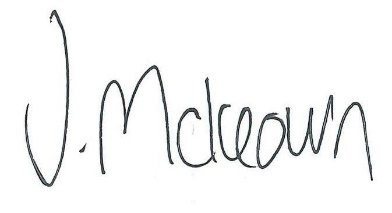 J. Mckeown